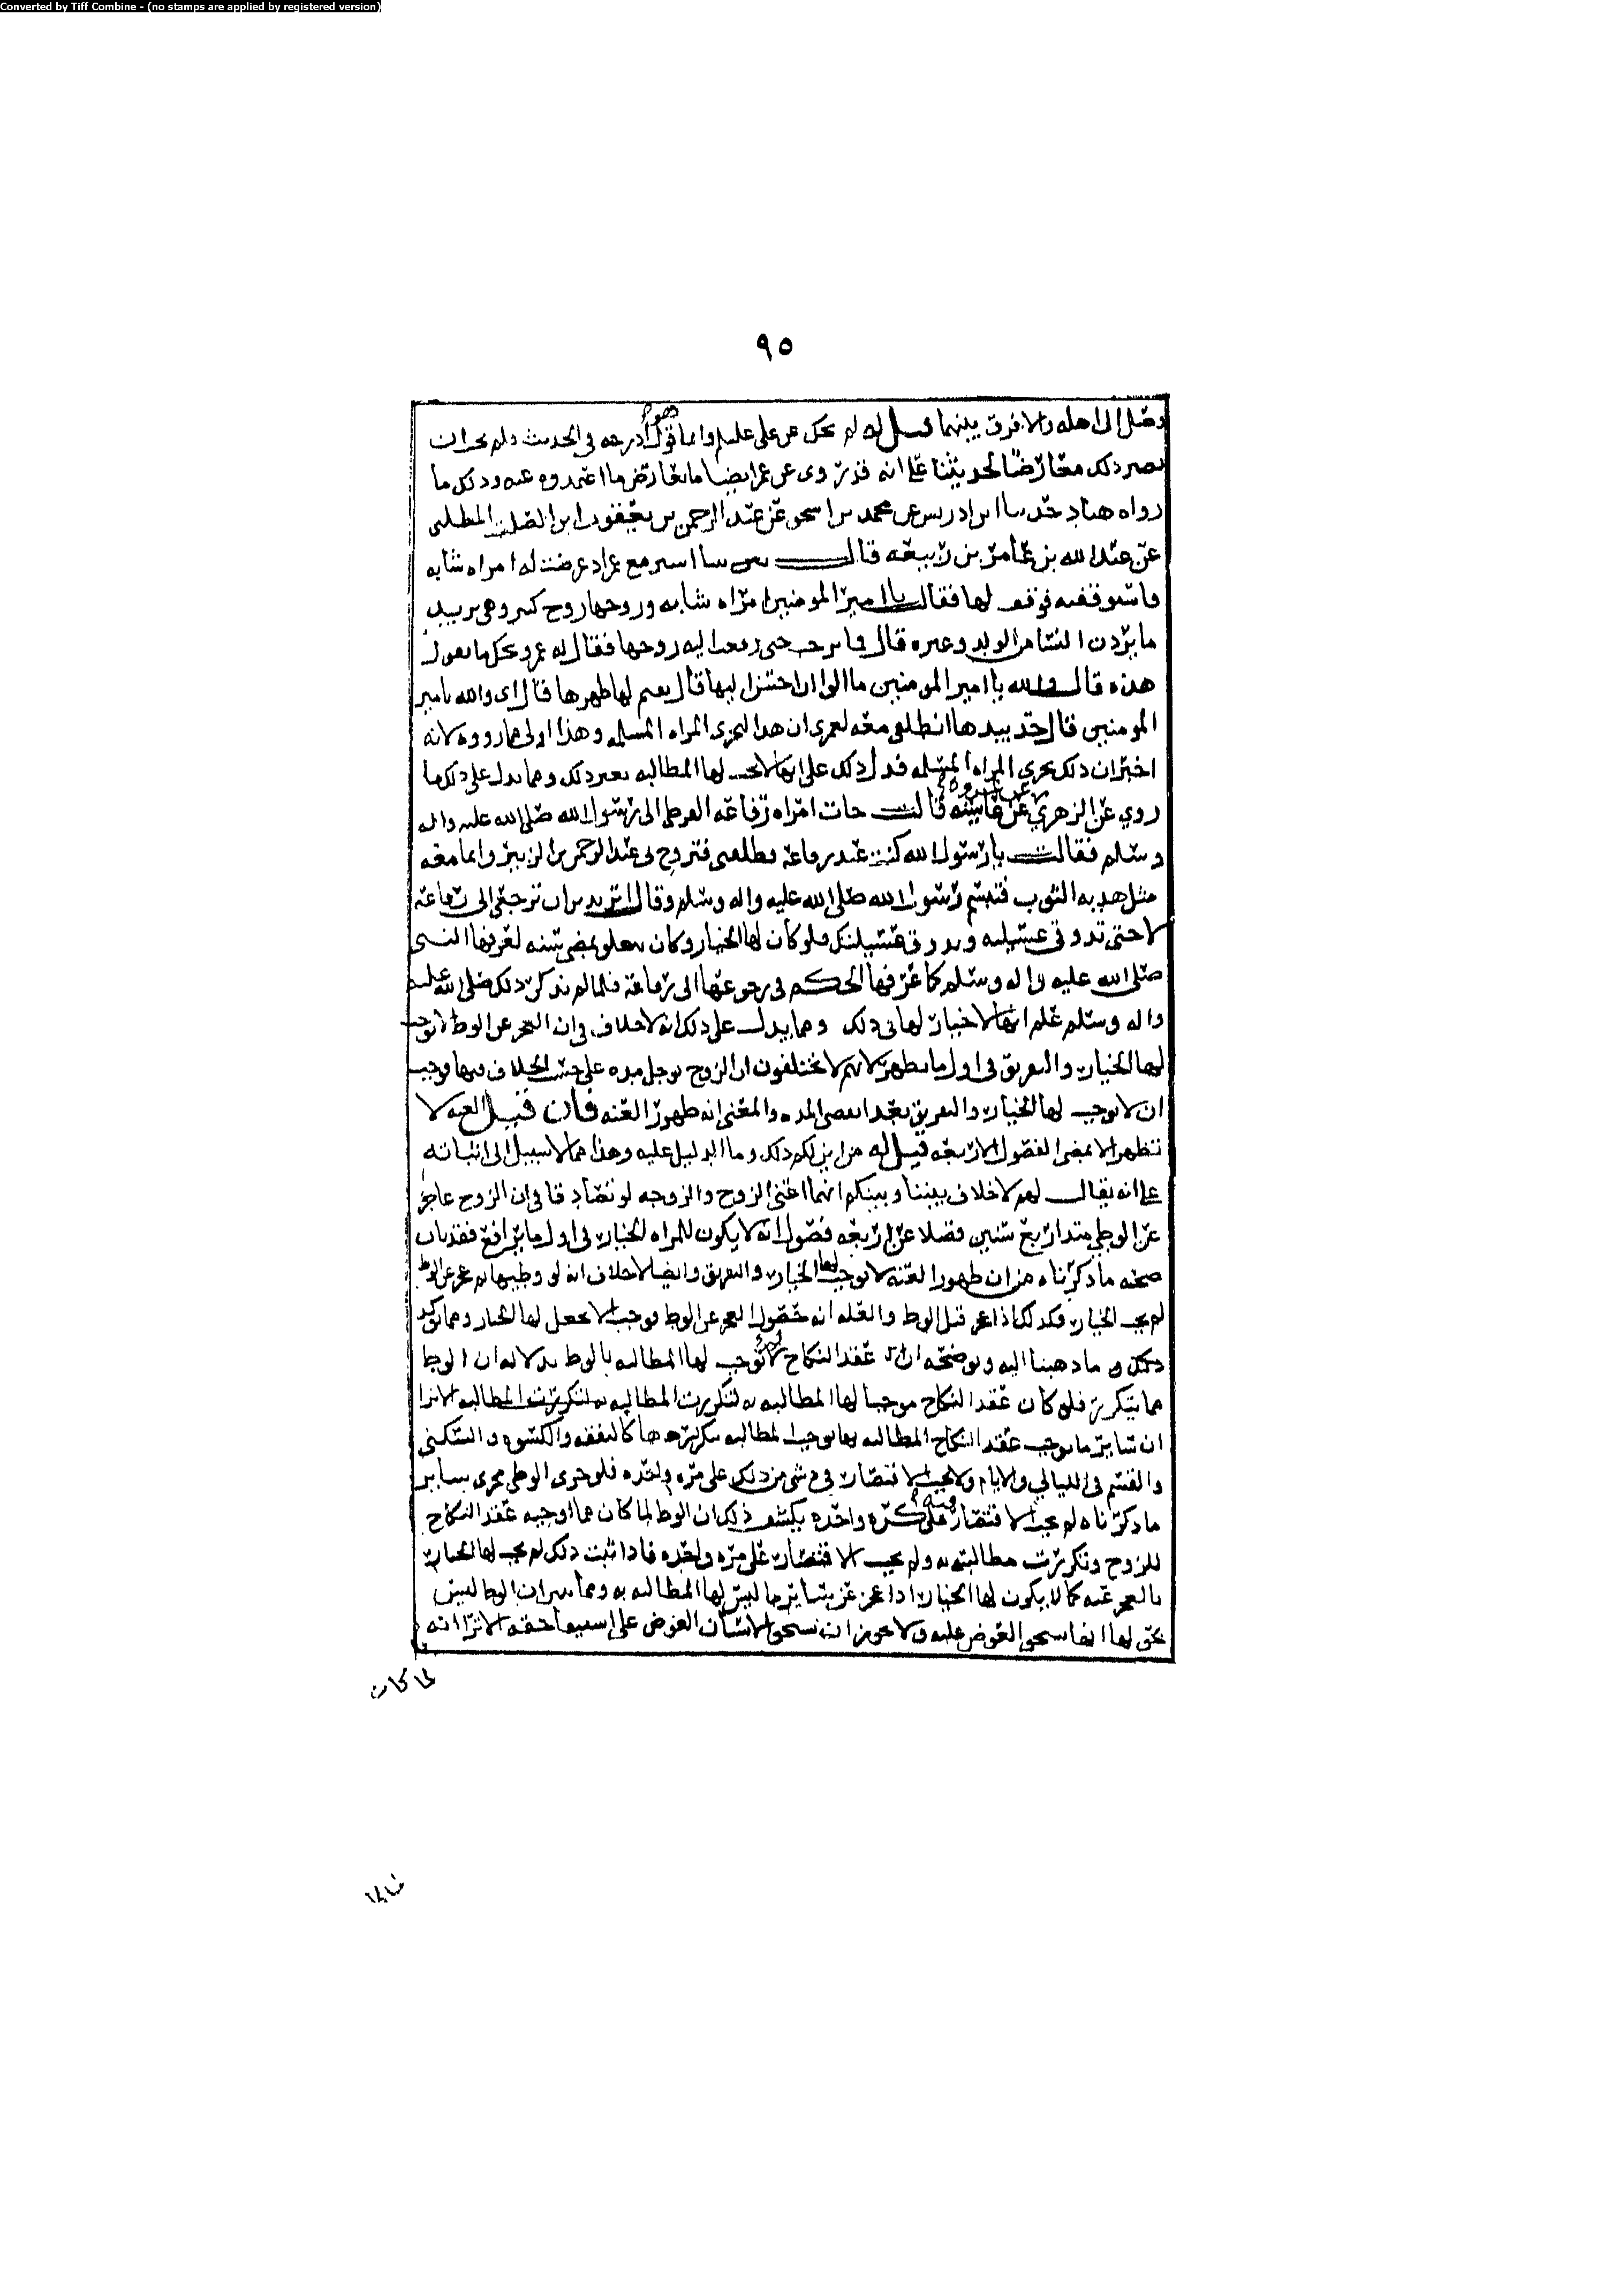 Converted by Tiff Combine - (no stamps are applied by registered version)
٩٥
وصل الى اهله والا فرق بينهما قيل له لم يحك عن على عليلم وانما هو قول ادرجه في الحديث ولم يجز ان
يصير ذلك معارضًا لحديثنا على انه قد روى عن عمر ايضا ما يعارض ما اعتمدوه عنه وذلك ما
رواه هناد حدثنا ابن ادريس عن محمد بن اسحق عن عبد الرحمن بن يعقوب ابن الصلت المطلبى
عن عبد الله بن عامر بن ربيعه قال بينا اسير مع عمر اذ عرضت له امراه شابه
فاستوقفته فوقف لها فقالت يا امير المومنين امراه شابه وزوجها زوج كبير وهى تريد
ما يردن النسا من الولد وغيره قال فما برحت حتى دفعت اليه زوجها فقال له عمر ويحك ما تقول
هذه قال والله يا امير المومنين ما الوا ان احتنزل ليها قال يقيم لها طهرها قال اى والله يا امير
المومنين قال خذ بيدها انطلقى معه لعمرى ان هذا ليجزى المراه المسلمه وهذا اولى مما رووه لانه
اخبر ان ذلك يجزى المراه المسلمه فدل ذلك على انها لا تجب لها المطالبه بغير ذلك ومما يدل على ذلك ما
روي عن الزهري عن عروه عن عايشه قالت جات امراه رفاعه القرظى الى رسول الله صلى الله عليه واله
وسلم فقالت يا رسول الله كنت عند رفاعه فطلقنى فتزوج بى عبد الرحمن بن الزبير وانما معه
مثل هدبه الثوب فتبسم رسول الله صلى الله عليه واله وسلم وقال اتريدين ان ترجعى الى رفاعه
لا حتى تذوقى عسيلته ويذوق عسيلتك فلو كان لها الخيار وكان يتعلق بمضى سنه لعرفها النبى
صلى الله عليه واله وسلم كما عرفها الحكم في رجوعها الى رفاعه فلما لم يذكر ذلك صلى الله عليه
واله وسلم علم انها لا خيار لها في ذلك ومما يدل على ذلك انه لا خلاف في ان العجز عن الوطا لا يوجب
لها الخيار والتفريق في اول ما يظهر لانهم لا يختلفون ان الزوج يوجل مده على حسب الخلاف فيها فوجب
ان لا يوجب لها الخيار والتفريق بعد انقضى المده والمعنى انه ظهور العنه فان قيل العنه لا
تظهر الا بمضى الفصول الاربعه قيل له من اين لكم ذلك وما الدليل عليه وهذا مما لا سبيل الى اثباته
على انه يقال لهم لا خلاف بيننا وبينكم انهما اعنى الزوج والزوجه لو تصادقا في ان الزوج عاجز
عن الوطى مقدار تسع سنين فضلا عن اربعه فصول انه لا يكون للمراه الخيار في اول ما يرافع فقد بان
صحه ما ذكرناه من ان ظهور العنه لا يوجب لها الخيار والتفريق وايضا لا خلاف انه لو وطيها ثم عجز عن الوطى
لم يجب الخيار فكذلك اذا عجز قبل الوطا والعله انه حصول العجز عن الوطا فوجب الا يجعل لها الخيار ومما يوكد
ذلك و ما ذهبنا اليه ويوضحه ان عقد النكاح لا يوجب لها المطالبه بالوطا بدلاله ان الوطا
مما يتكرر فلو كان عقد النكاح موجبا لها المطالبه به لتكررت المطالبه به لتكررت المطالبه الا ترا
ان ساير ما يوجب عقد النكاح المطالبه بها يوجب المطالبه بتكررها كالنفقه والكسوه والسكنى
والقسم في الليالي والايام ولا يجب الاقتصار في شى من ذلك على مره واحده فلو جرى الوطى مجرى ساير
ما ذكرناه لم يجب الاقتصار فيه على كره واحده يكشف ذلك ان الوطا لما كان مما اوجبه عقد النكاح
للزوج وتكررت مطالبته به ولم يجب الاقتصار على مره واحده فاذا ثبت ذلك لم يجب لها الخيار
بالعجز عنه كما لا يكون لها الخيار اذا عجز عن ساير ما ليس لها المطالبه به ومما يبين ان الوطا ليس
بحق لها انها تستحق العوض عليه ولا يجوز ان يستحق الانسان العوض على استيفا حقه الا ترا انه
لما كان